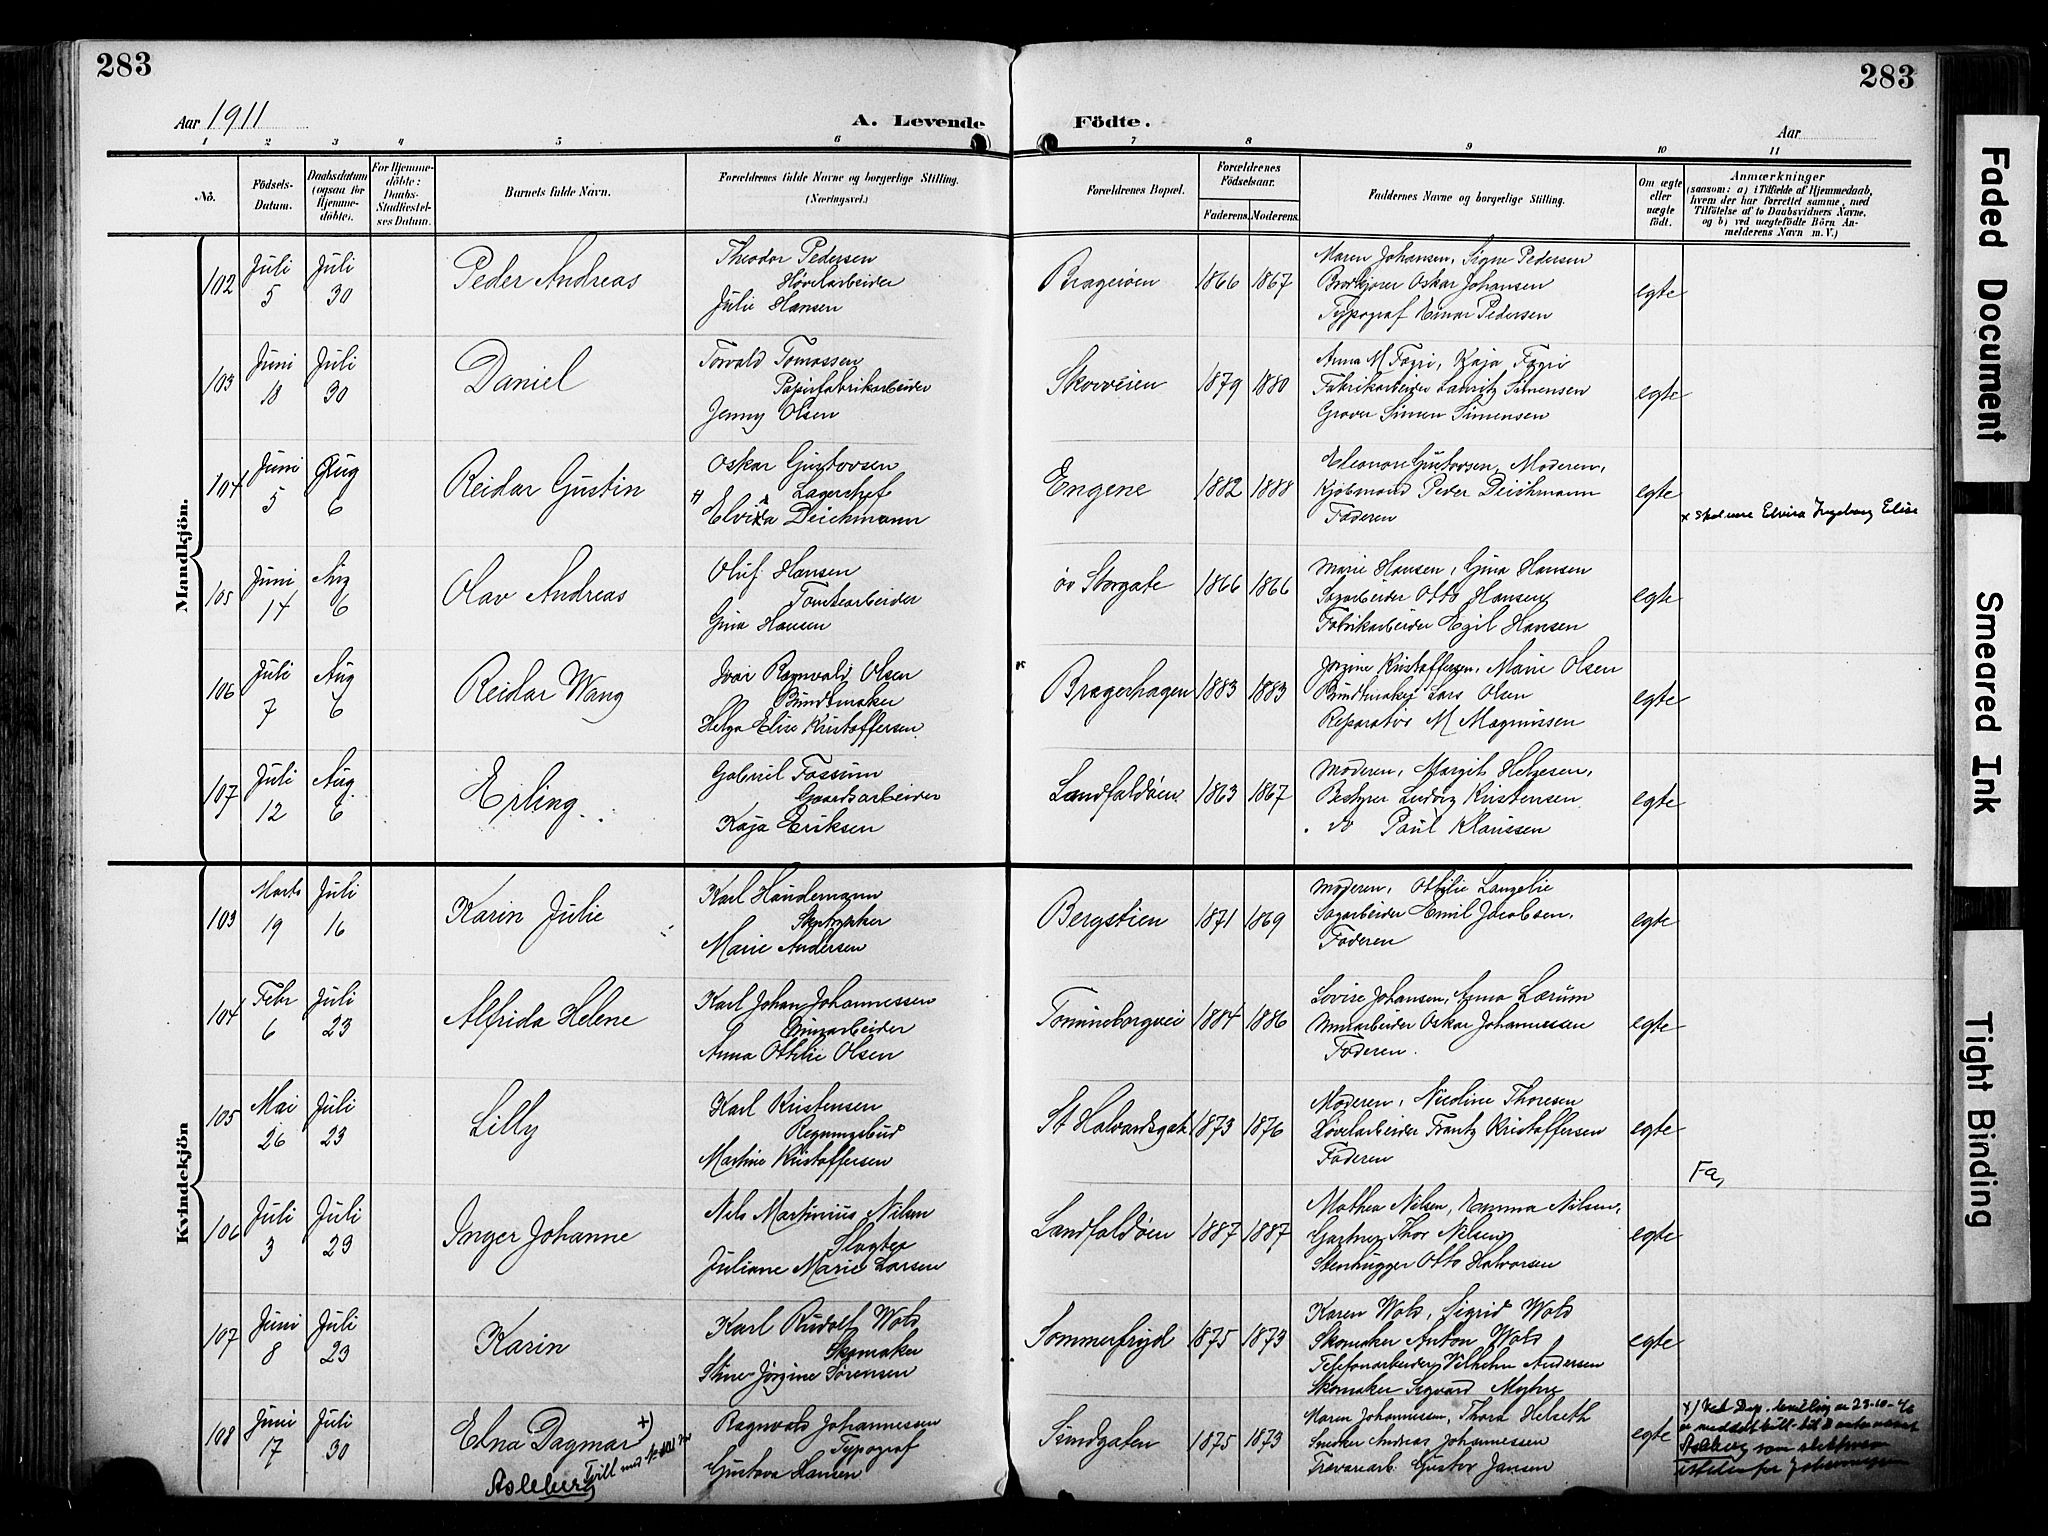 283
283
Aar 1911
A. Levende Födte.
Aar
1 2 3 4 5 6 7 8 9 10 11
No.
Födsels-Datum.
Daabsdatum (ogsaa for Hjemme-döbte).
For Hjemme-döbte: Daabs-Stadfæstel-ses Datum.
Barnets fulde Navn.
Forældrenes fulde Navne og borgerlige Stilling. (Næringsvei.)
Forældrenes Bopæl.
Forældrenes Födselsaar.
Faderens. Moderens.
Faddernes Navne og borgerlige Stilling.
Om ægte eller uægte födt.
Anmærkninger
(saasom: a) i Tilfælde af Hjemmedaab, hvem der har forrettet samme, med Tilföielse af to Daabsvidners Navne, og b) ved uægtefödte Börn An-melderens Navn m. V.)
Mandkjön.
102 Juli 5 Juli 30 Peder Andreas
Theodor Pedersen
Høvelarbeider
Julie Hansen
Bragerøen 1866 1867
Maren Johansen, Signe Pedersen
Brødkjører Oskar Johansen
Typograf Einar Pedersen
egte
103 Juni 18 Juli 30 Daniel
Torvald Tomassen
Papirfabrikarbeider
Jenny Olsen
Skovveien 1879 1880
Anna M Fagri, Kaja Fagri
Fabrikarbeider Lauritz Simensen
Graver Simen Simensen
egte
104 Juni 5 Aug 6 Reidar Gustin
Oskar Gustavsen
Lagerchef
Elvira Deichmann
Engene 1882 1888
Eleonore Gustavsen, Moderen,
Kjøbmand Peder Deichmann
Faderen
egte
x skal være Elvira Ingeborg Elise
105 Juni 14 Aug 6 Olav Andreas
Oluf Hansen
Tomtearbeider
Gina Hansen
øv Storgate 1866 1866
Marie Hansen, Gina Hansen
Sagarbeider Otto Hansen
Fabrikarbeider Egil Hansen
egte
106 Juli 7 Aug 6 Reidar Wang
Ivar Ragnvald Olsen
Bundtmaker
Helga Elise Kristoffersen
Bragerhagen 1883 1883
Jørgine Kristoffersen, Marie Olsen
Bundtmaker Lars Olsen
Reparatør M Magnussen
egte
107 Juli 12 Aug 6 Erling
Gabriel Fossum
Gaardsarbeider
Kaja Eriksen
Landfaldøen 1863 1867
Moderen, Margit Helgesen,
Bestyrer Ludvig Kristensen
do Paul Klaussen
egte
Kvindekjön
103 Marts 19 Juli 16 Karin Julie
Karl Händemann
Marie Andersen
Bergstien 1871 1869
Moderen, Ottilie Langelie
Sagarbeider Emil Jacobsen,
Faderen
egte
104 Febr 6 Juli 23 Alfrida Helene
Karl Johan Johannessen
Anna Ottilie Olsen
Tomineborgvei 1884 1886
Lovise Johansen, Anna Lærum
Murarbeider Oskar Johannessen
Faderen.
egte
105 Mai 26 Juli 23 Lilly
Karl Kristensen
Regningsbud
Martine Kristoffersen
St Halvardsgat 1873 1876
Moderen, Nicoline Thoresen
Høvelarbeider Frantz Kristoffersen
Faderen
egte
Fa,
106 Juli 3 Juli 23 Inger Johanne
Nels Martinius Nilsen
Slagter
Juliane Marie Larsen
Landfaldøen 1887 1887
Mathea Nilsen, Emma Nilsen,
Gartner Thor Nilsen
Stenhugger Otto Halvorsen
egte
107 Juni 8 Juli 23 Karin
Karl Rudolf Wold
Skomaker
Stine Jørgine Sørensen
Sommerfryd 1875 1873
Karen Wold, Sigrid Wold
Skomaker Anton Wold
Telefonarbeider Vilhelm Andersen
Skomaker Sigvard Myhre
egte
108 Juni 17 Juli 30 Elna Dagmar +)
Ragnvald Johannessen
Typograf
Gustava Hansen
Sundgaten 1875 1873
Maren Johannessen, Thora Helseth
Snedker Andreas Johannessen
Travarearb. Gustav Jansen
egte
x) Ved 23-10-46
Asleberg som slektsnavn
istedenfor Johannessen
Asleberg
Faded Document
Smeared Ink
Tight Binding